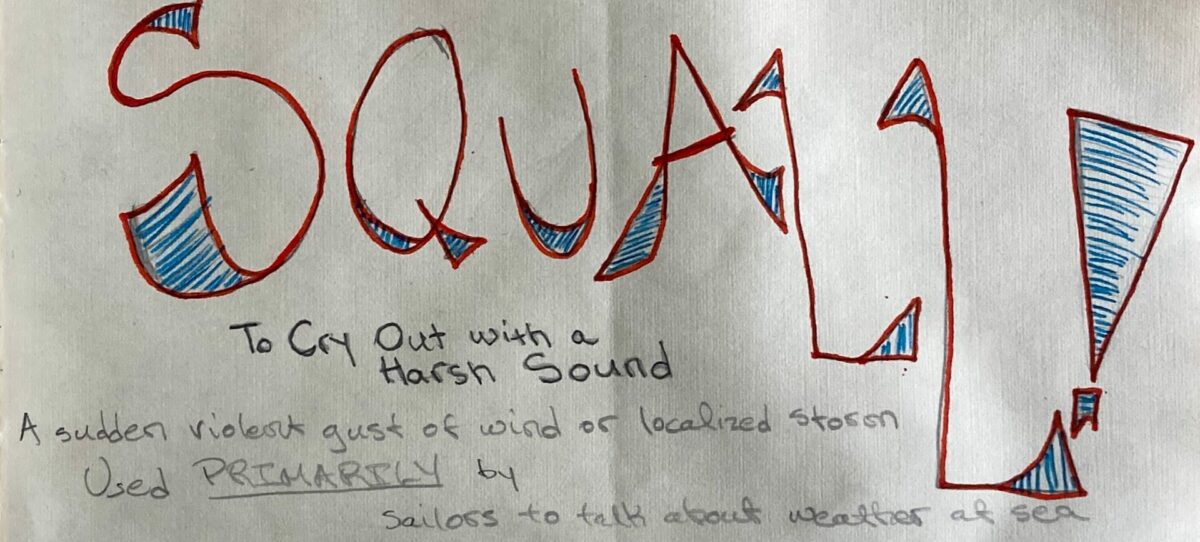 SQUALL!
To Cry Out with a
Harsh Sound
A sudden violent gust of wind or localized storm
Used PRIMARILY by
sailors to talk about weather at sea